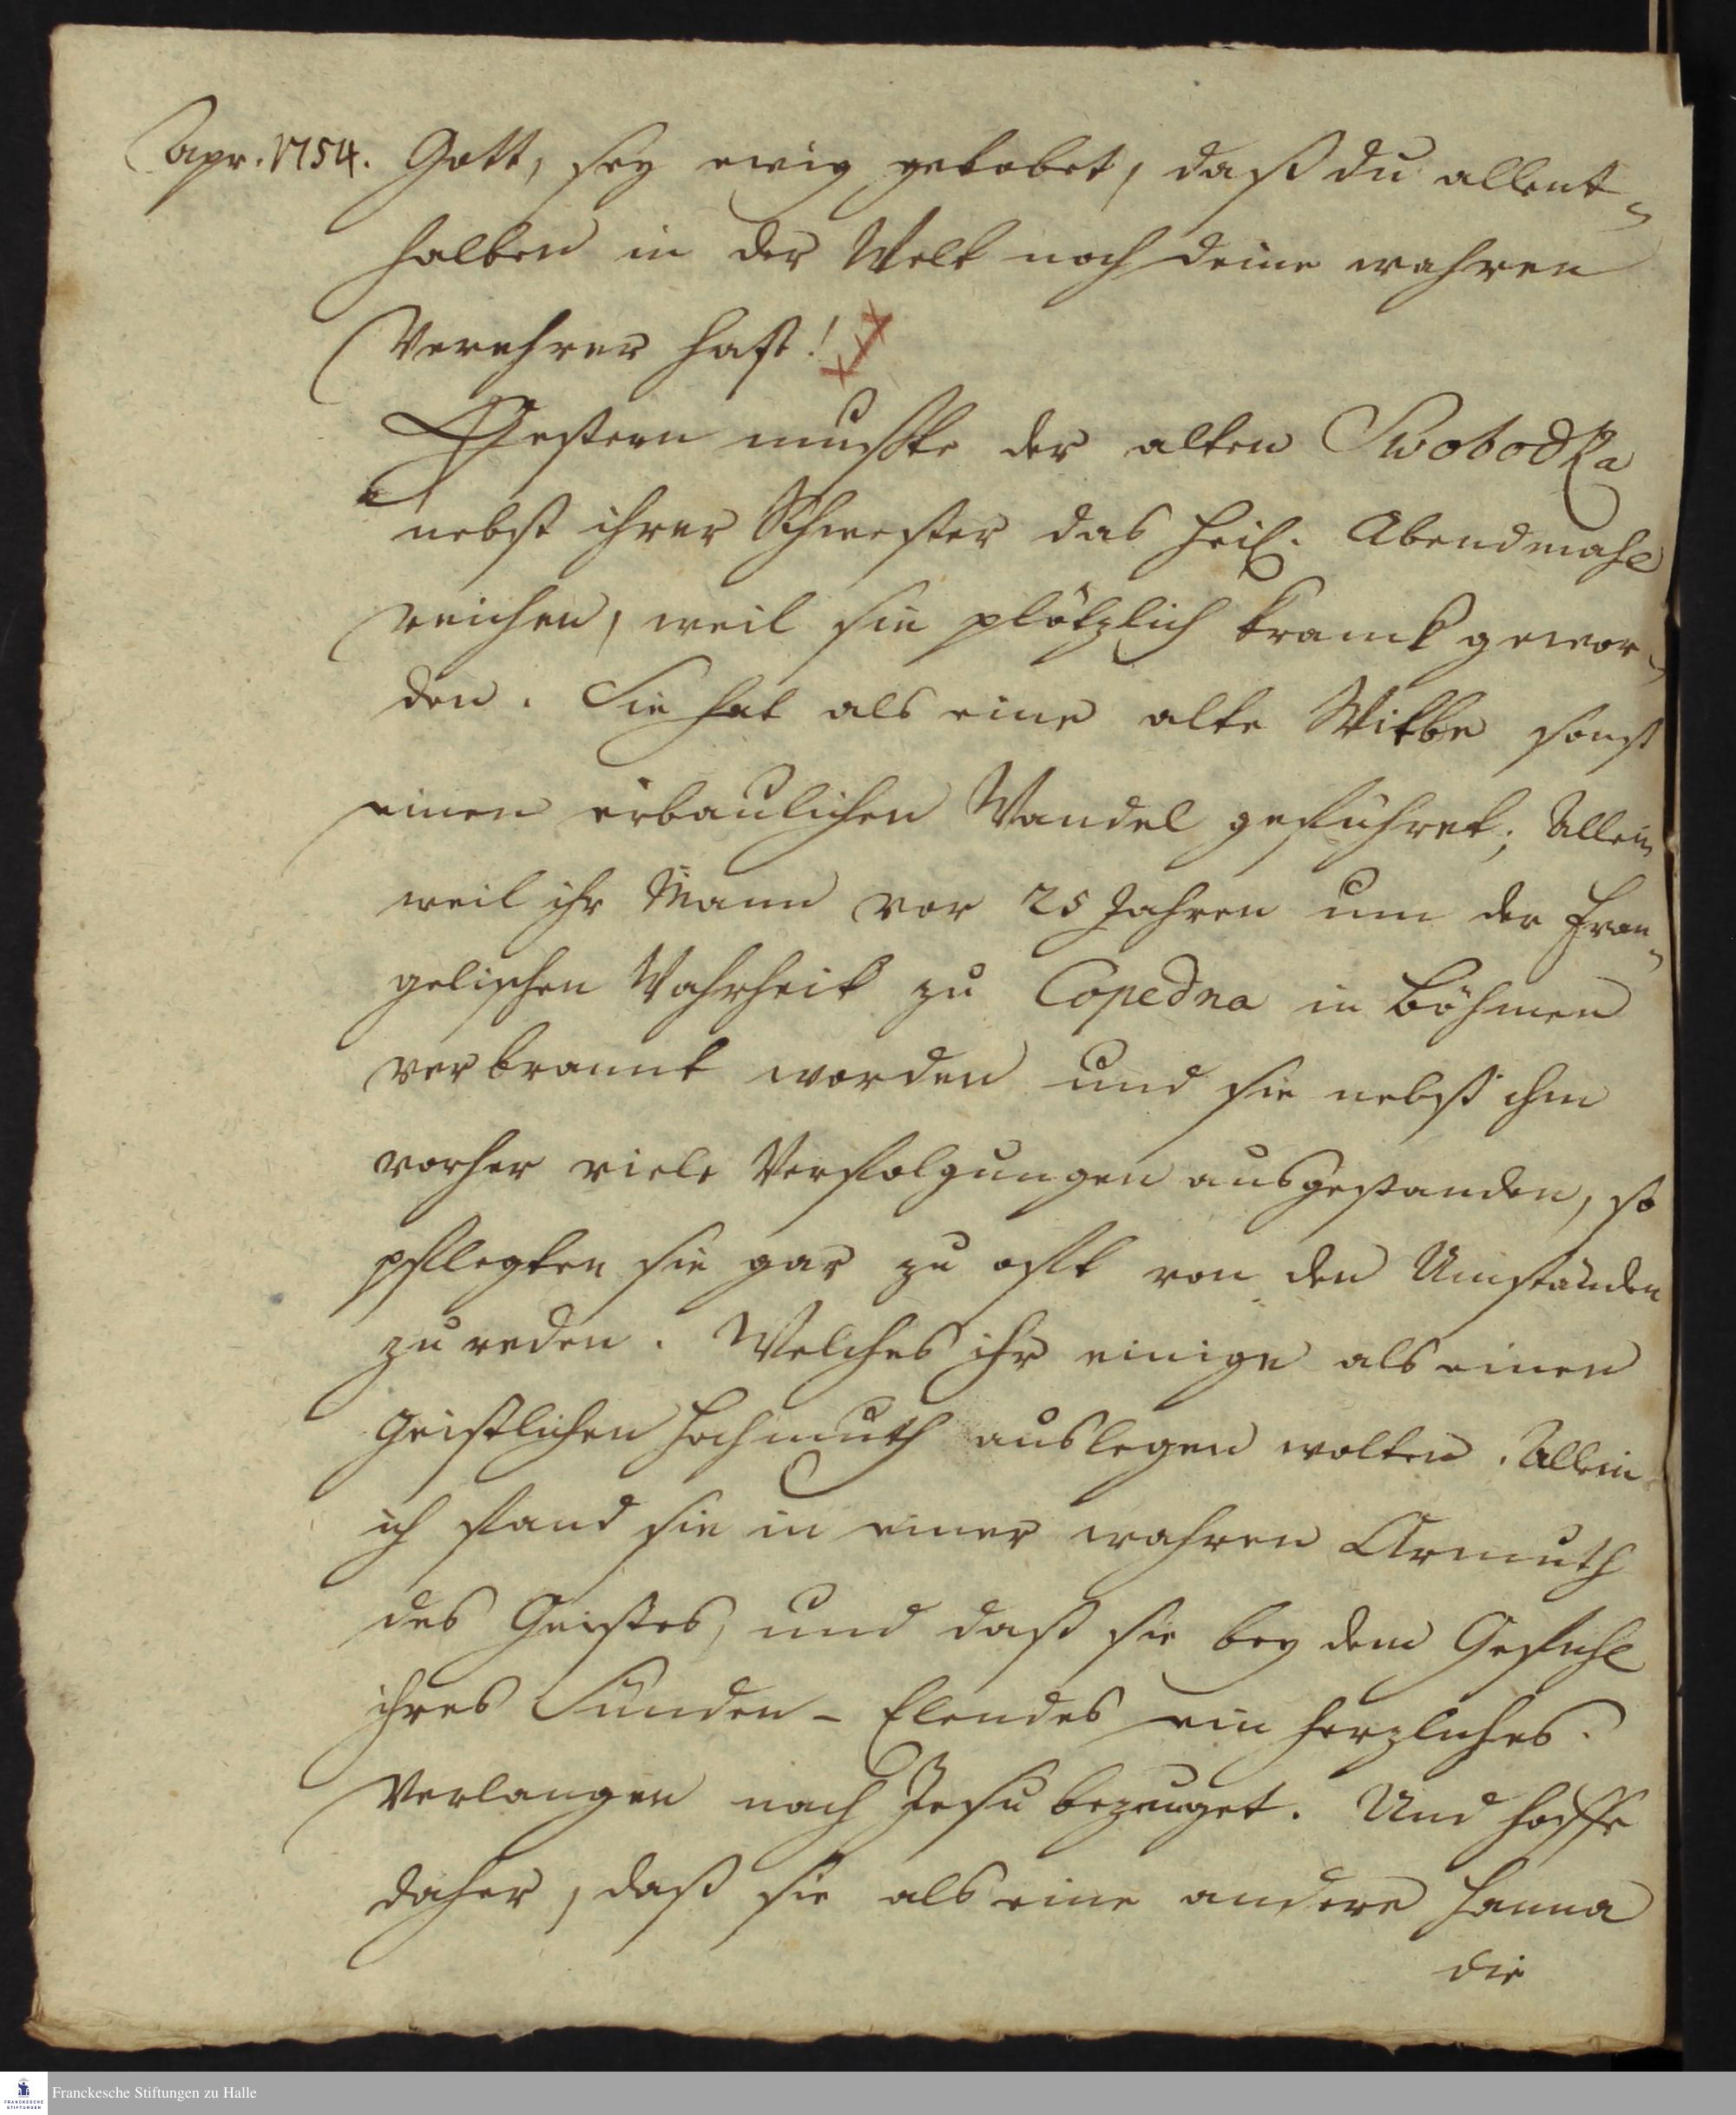 Apr. 1754. Gott, sey ewig gelobet, daß du allent-
halben in der Welt noch deine wahren
Verehrer hast!
Gestern muste der alten Swobodka
nebst ihrer Schwester das heil. Abendmahl
reichen, weil sie plötzlich kranck gewor-
den. Sie hat als eine alte Witbe sonst
einen erbaulichen Wandel geführet; Allein
weil ihr Mann vor 25 Jahren um der Evan-
gelischen Wahrheit zu Copedna in Böhmen
verbrannt worden und sie nebst ihm
vorher viele Verfolgungen ausgestanden, so
pflegten sie gar zu oft von den Umständen
zu reden. Welches ihr einige als einen
geistlichen Hochmuth auslegen wolten. Allein
ich fand sie in einer wahren Armuth
des Geistes, und daß sie bey dem Gefühl
ihres Sünden-Elendes ein herzliches
Verlangen nach Jesu bezeuget. Und hoffe
daher, daß sie als eine andere Hanna
die
Franckesche Stiftungen zu Halle
FRANCKESCHE
STIFTUNGEN